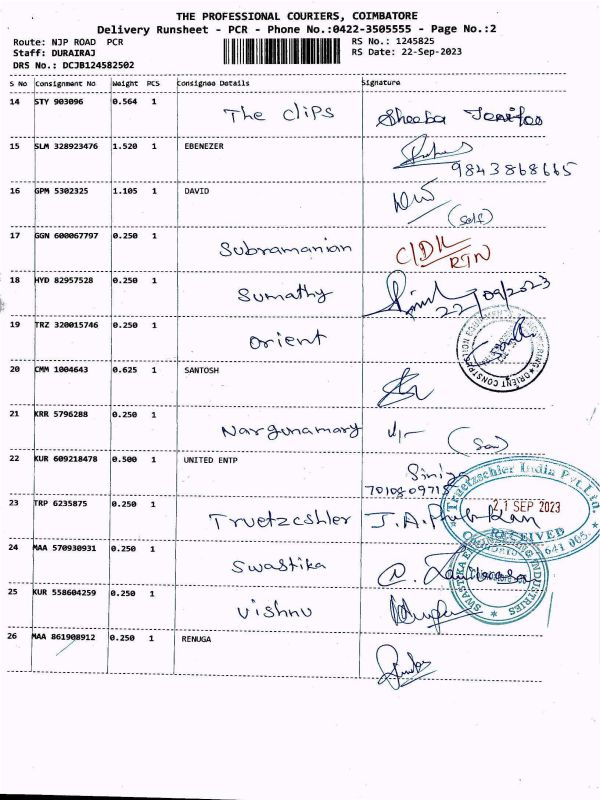 THE PROFESSIONAL COURIERS, COIMBATORE
Delivery Runsheet - PCR - Phone No.:0422-3505555 - Page No.:2
Route: NJP ROAD PCR
RS No.: 1245825
Staff: DURAIRAJ
RS Date: 22-Sep-2023
DRS No.: DCJB124582502
S No Consignment No Weight PCS Consignee Details Signature
14 STY 903096 0.564 1 The clips Sheeba
15 SLM 328923476 1.520 1 EBENEZER
9843868665
16 GPM 5302325 1.105 1 DAVID
(self)
17 GGN 600067797 0.250 1 Subramanian C/DK
RTN
18 HYD 82957528 0.250 1 Sumathy 22/09/2023
19 TRZ 320015746 0.250 1 orient
ORIENT CONSTRUCTION EQUIPMENTS
20 CMM 1004643 0.625 1 SANTOSH
21 KRR 5796288 0.250 1 Nargunamary
22 KUR 609218478 0.500 1 UNITED ENTP
Truetzschler India Pvt. Ltd.
21 SEP 2023
RECEIVED
641 065
23 TRP 6235875 0.250 1 Truetzcshler
24 MAA 570930931 0.250 1 Swastika
SWASTIKA INDUSTRIES
25 KUR 558604259 0.250 1 Vishnu
26 MAA 861908912 0.250 1 RENUGA